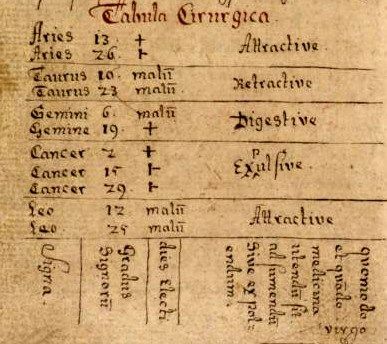 Tabula Cirurgica.
Aries 13 +
Aries 26 ⊢ Attractive
Taurus 10. malū
Taurus 23 malū Retractive
Gemini 6. malū
Gemine 19. + Digestive
Cancer 2 +
Cancer 15 ⊢ Expulsive
Cancer 29. ⊢
Leo 12 malū
Leo 25 malū Attractive
Signa
Gradus
Signorū
dies Electi
quomodo
et quādo
medicina
utendū sit
ad sumendū
Sive expoli
endum.
virgo